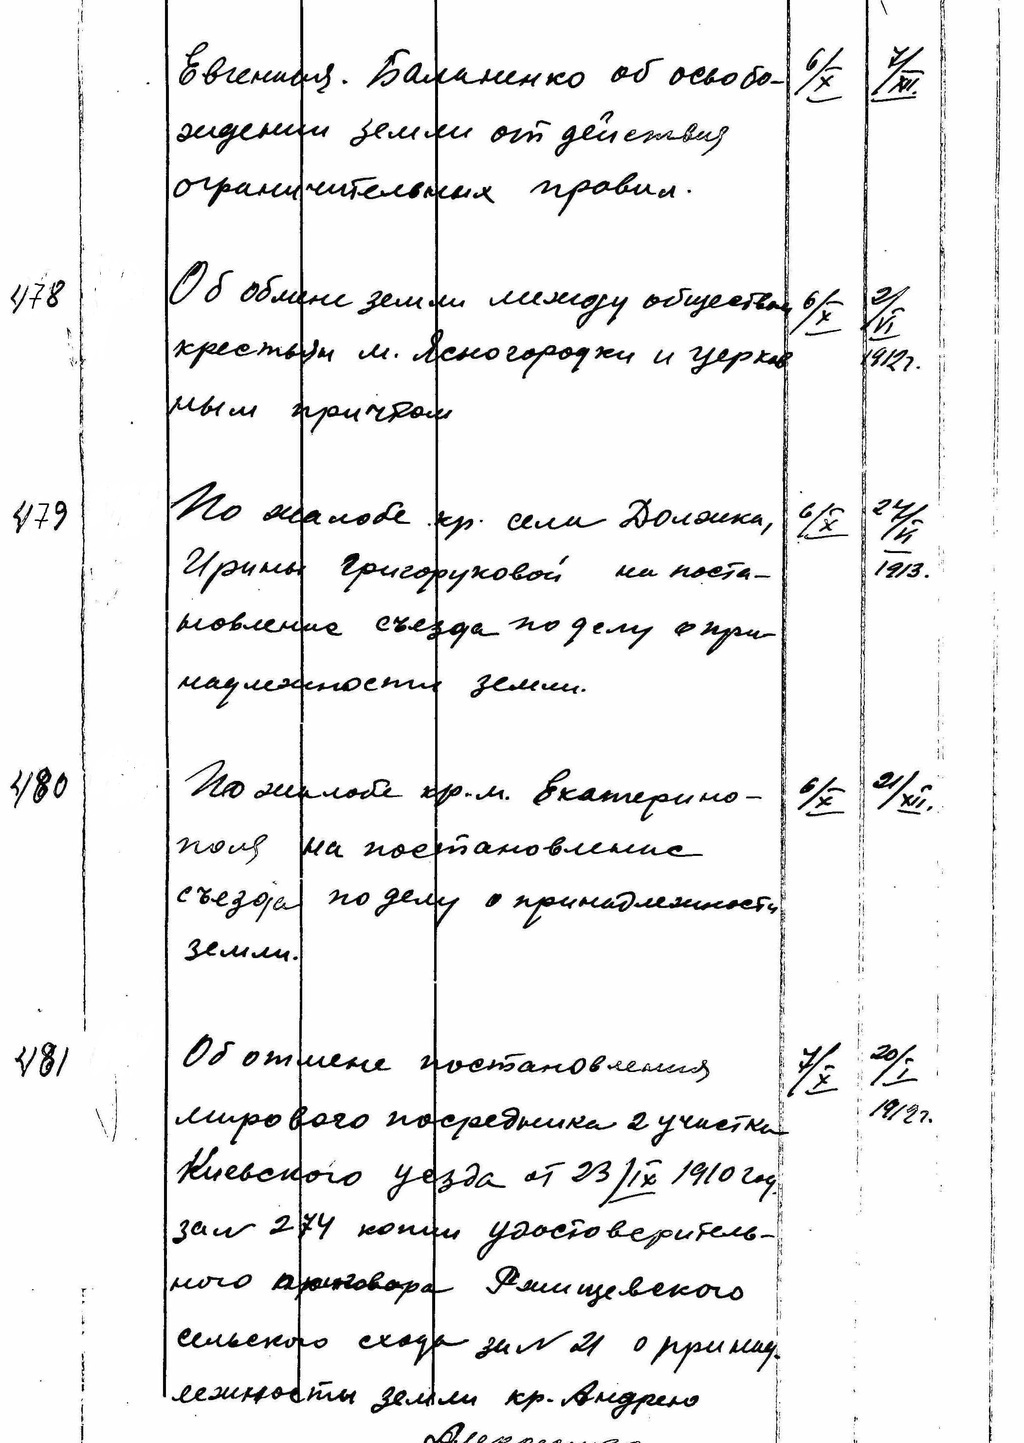 Евгения. Баланенко об освобо- 6/X 7/XII.
ждении земли от действия
ограничительных правил.
478 Об обмене земли между обществом 6/X 2/VI
крестьян м. Ясногородки и церков 1912г.
ным причтом
479 По жалобе кр. села Должка, 6/X 24/VI
Ирины Григоруковой на поста- 1913.
новление съезда по делу о при-
надлежности земли.
480 По жалобе кр. м. Екатерино- 6/X 21/XII.
поля на постановление
съезда по делу о принадлежности
земли.
481 Об отмене постановления 7/X 20/I
мирового посредника 2 участка 1912г.
Киевского уезда от 23/IX 1910 год.
за N 274 копии удостоверитель-
ного приговора Ржищевского
сельского схода за N 21 о принад-
лежности земли кр. Андрею